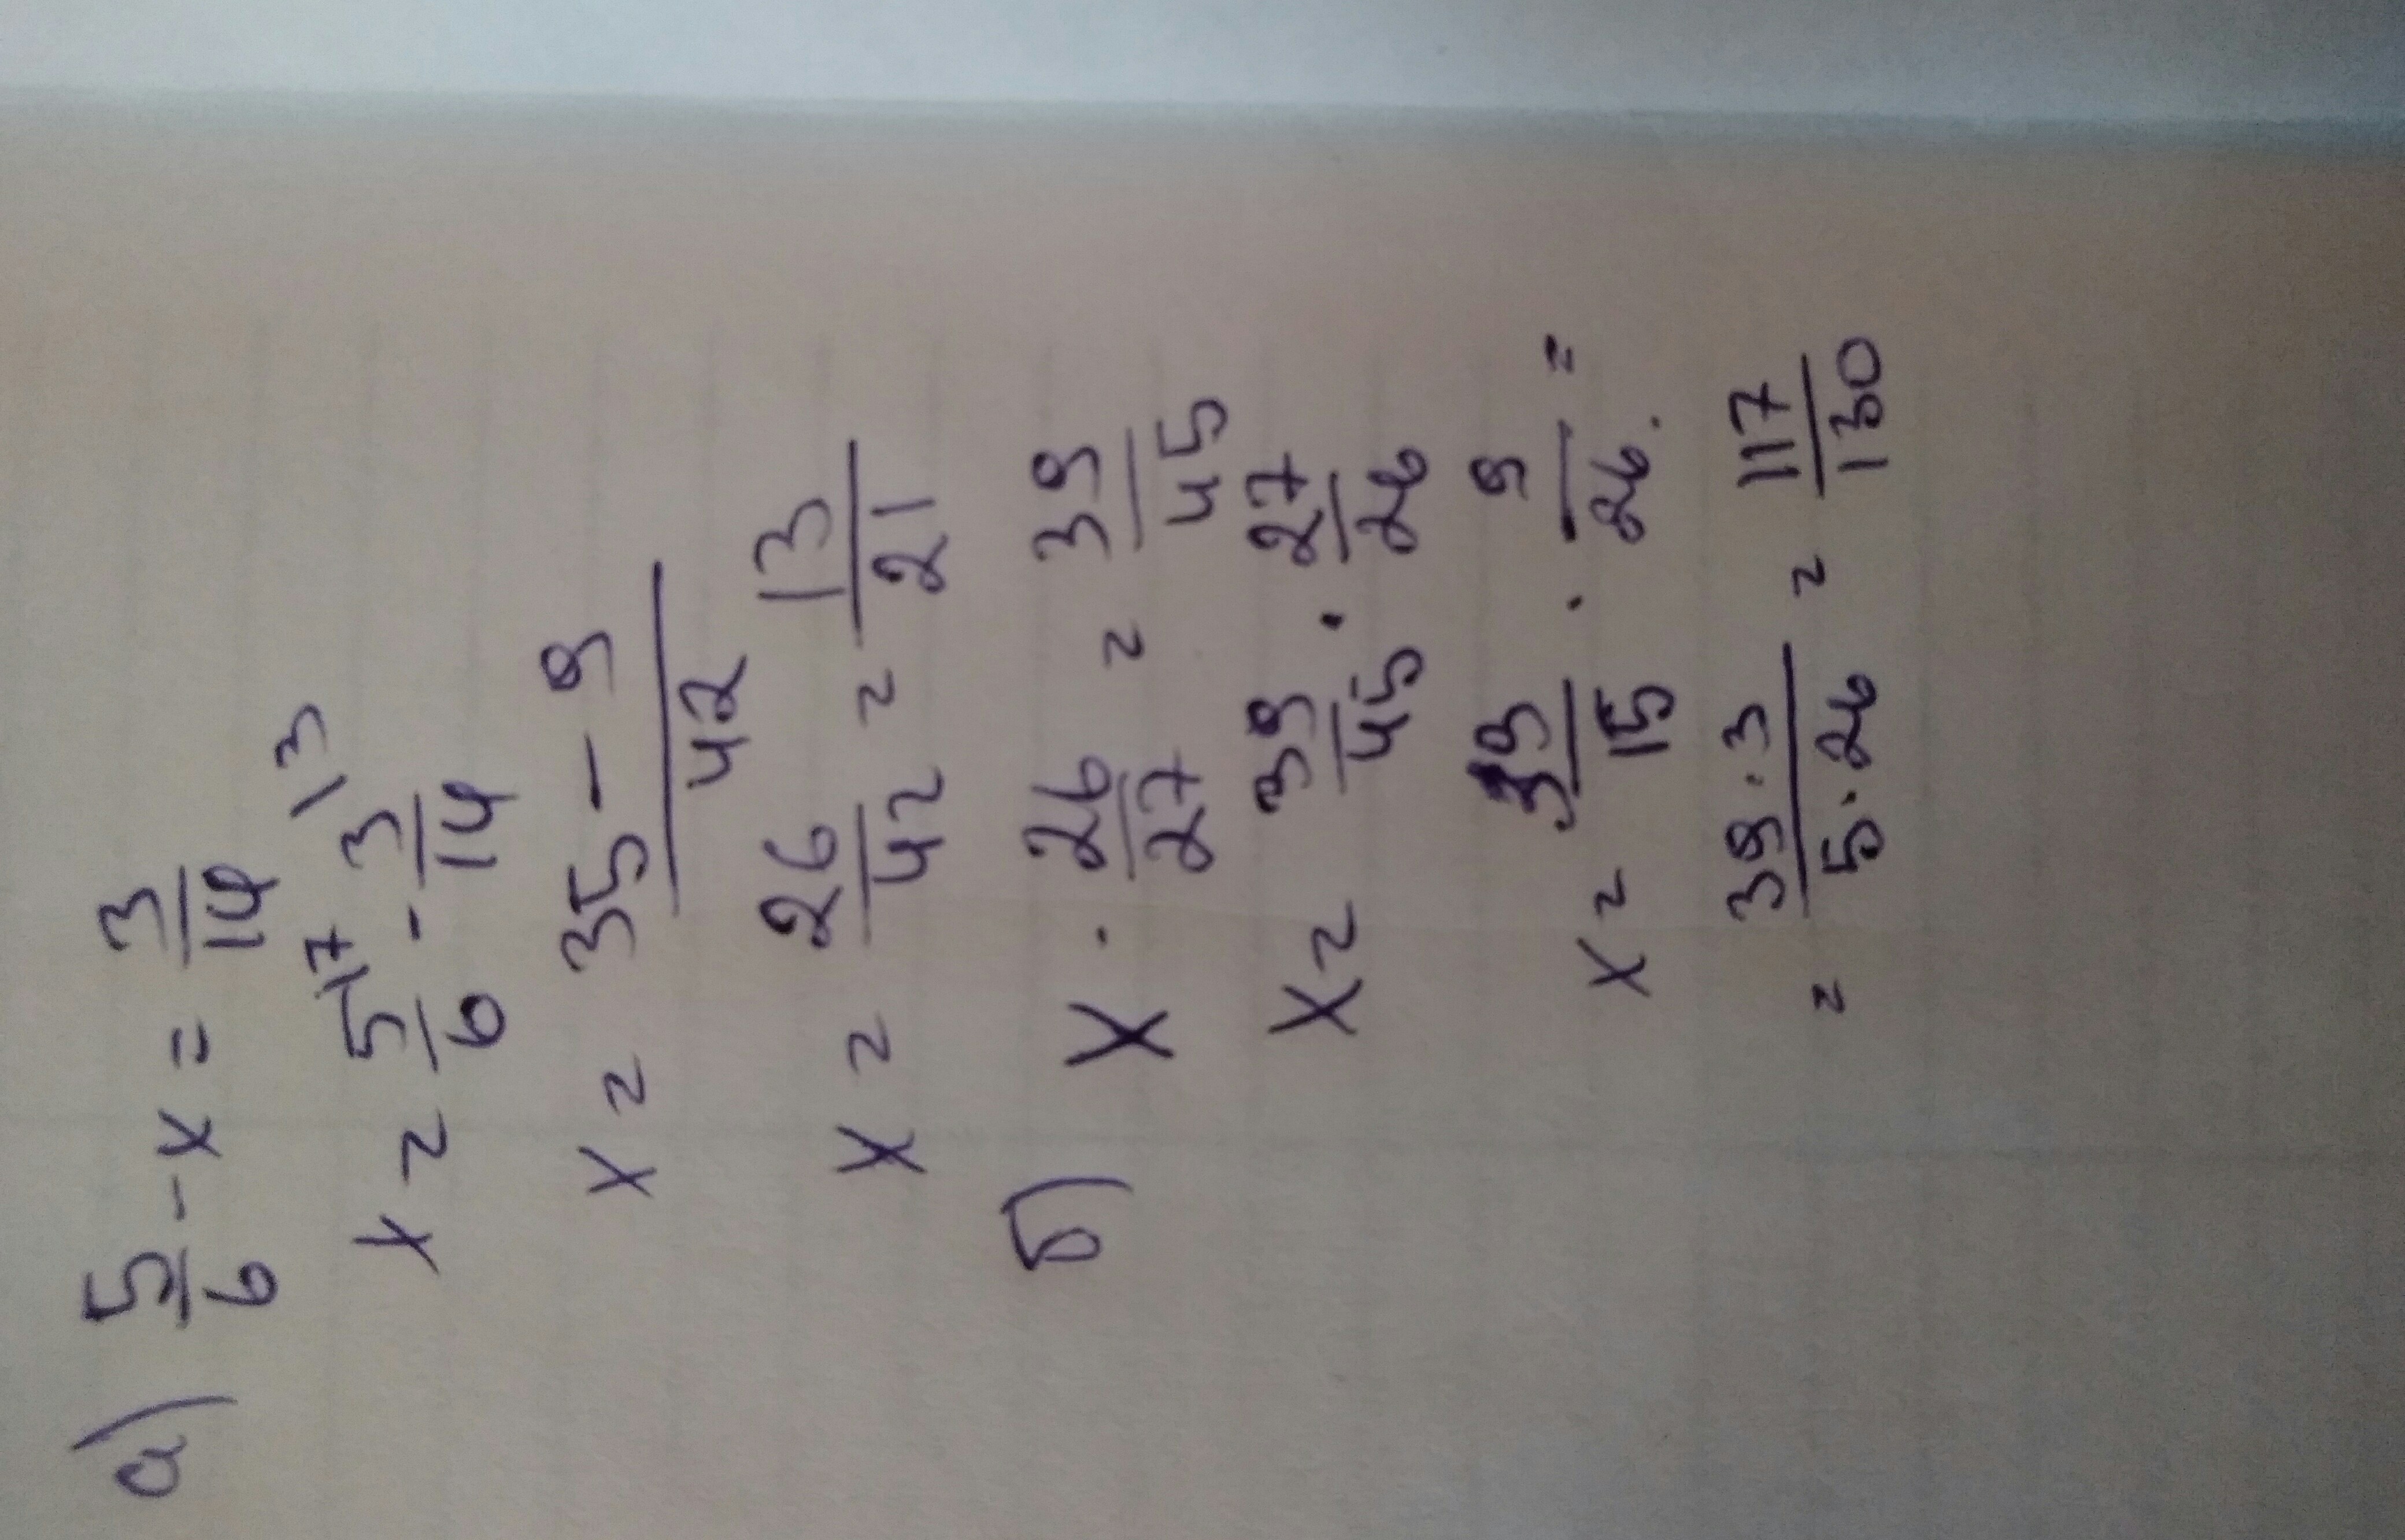 а) 5/6 - x = 3/14
x = 5/6 \7 - 3/14 \3
x = (35 - 9)/42
x = 26/42 = 13/21
б) x · 26/27 = 39/45
x = 39/45 · 27/26
x = 39/15 · 9/26 =
= (39 · 3)/(5 · 26) = 117/130